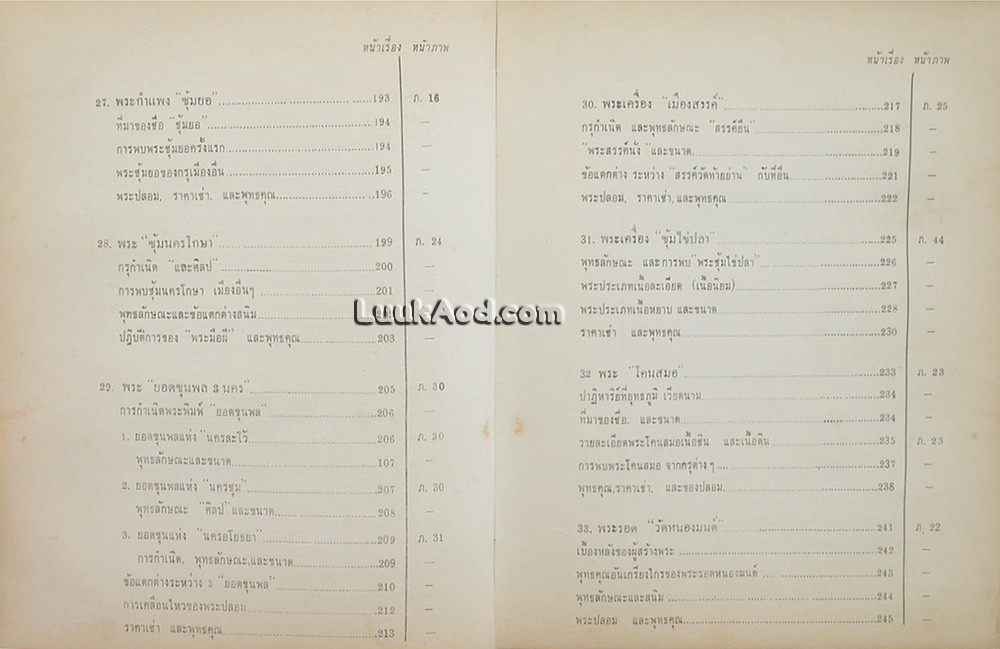 หน้าเรื่อง หน้าภาพ
27. พระกำแพง "ซุ้มยอ" 193 ภ. 16
ที่มาของชื่อ "ซุ้มยอ" 194 —
การพบพระซุ้มยอครั้งแรก 194 —
พระซุ้มยอของกรุเมืองอื่น 195 —
พระปลอม, ราคาเช่า, และพุทธคุณ 196 —
28. พระ "ซุ้มนครโกษา" 199 ภ. 24
กรุกำเนิด "และศิลป" 200 —
การพบซุ้มนครโกษา เมืองอื่นๆ 201 —
พุทธลักษณะและข้อแตกต่างสนิม
LuukAod.com
ปฏิบัติการของ "พระมือผี" และพุทธคุณ 203 —
29. พระ "ยอดขุนพล 3 นคร" 205 ภ. 30
การกำเนิดพระพิมพ์ "ยอดขุนพล" 206 —
1. ยอดขุนพลแห่ง "นครละโว้" 206 ภ. 30
พุทธลักษณะและขนาด 107 —
2. ยอดขุนพลแห่ง "นครชุม" 207 ภ. 30
พุทธลักษณะ "ศิลป" และขนาด 208 —
3. ยอดขุนแห่ง "นครอโยธยา" 209 ภ. 31
การกำเนิด, พุทธลักษณะ,และขนาด 209 —
ข้อแตกต่างระหว่าง 3 "ยอดขุนพล" 210 —
การเคลื่อนไหวของพระปลอม 212 —
ราคาเช่า และพุทธคุณ 213 —
หน้าเรื่อง หน้าภาพ
30. พระเครื่อง "เมืองสรรค์" 217 ภ. 25
กรุกำเนิด และพุทธลักษณะ "สรรค์ยืน" 218 —
"พระสรรค์นั่ง" และขนาด 219 —
ข้อแตกต่าง ระหว่าง "สรรค์วัดท้ายย่าน" กับที่อื่น 221 —
พระปลอม, ราคาเช่า, และพุทธคุณ 222 —
31. พระเครื่อง "ซุ้มไข่ปลา" 225 ภ. 44
พุทธลักษณะ และการพบ "พระซุ้มไข่ปลา" 226 —
พระประเภทเนื้อละเอียด (เนื้อนิยม) 227 —
พระประเภทเนื้อหยาบ และขนาด 228 —
ราคาเช่า และพุทธคุณ 230 —
32 พระ "โคนสมอ" 233 ภ. 23
ปาฏิหาริย์ที่ยุทธภูมิ เวียดนาม 234 —
ที่มาของชื่อ, และขนาด 234 —
รายละเอียดพระโคนสมอเนื้อชิน และเนื้อดิน 235 ภ. 23
การพบพระโคนสมอ จากกรุต่างๆ 237 —
พุทธคุณ,ราคาเช่า, และของปลอม 238 —
33, พระรอด "วัดหนองมนต์" 241 ภ, 22
เบื้องหลังของผู้สร้างพระ 242 —
พุทธคุณอันเกรียงไกรของพระรอดหนองมนต์ 243 —
พุทธลักษณะและสนิม 244 —
พระปลอม และพุทธคุณ 245 —